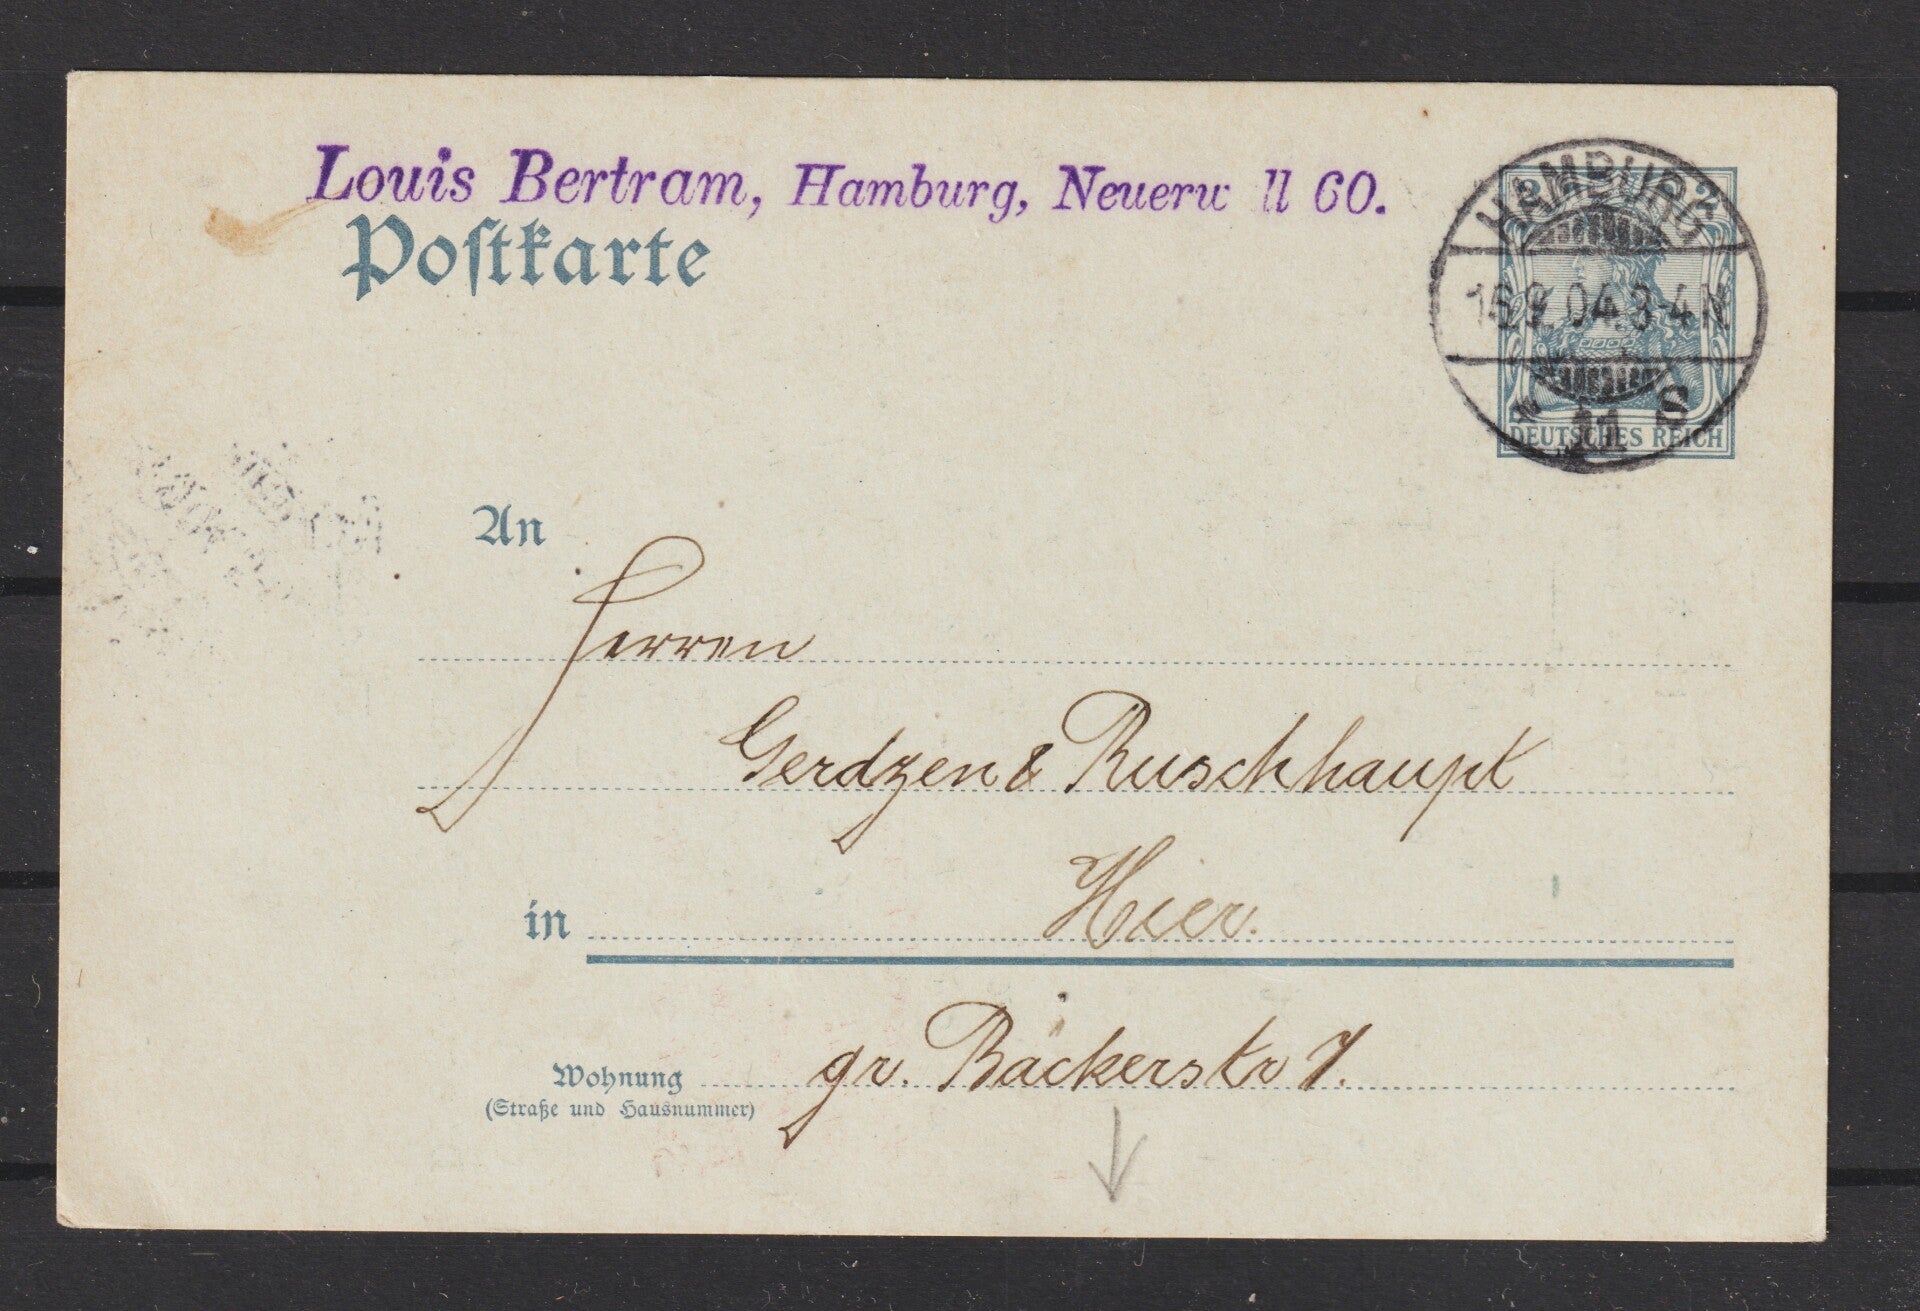 Louis Bertram, Hamburg, Neuerw ll 60.
Postkarte
2 2
HAMBURG
9. 04. 3-4 N
11
DEUTSCHES REICH
An
Herren
Gerdzen & Ruschhaupt
in Hier.
gr. Bäckerstr 7.
Wohnung
(Straße und Hausnummer)